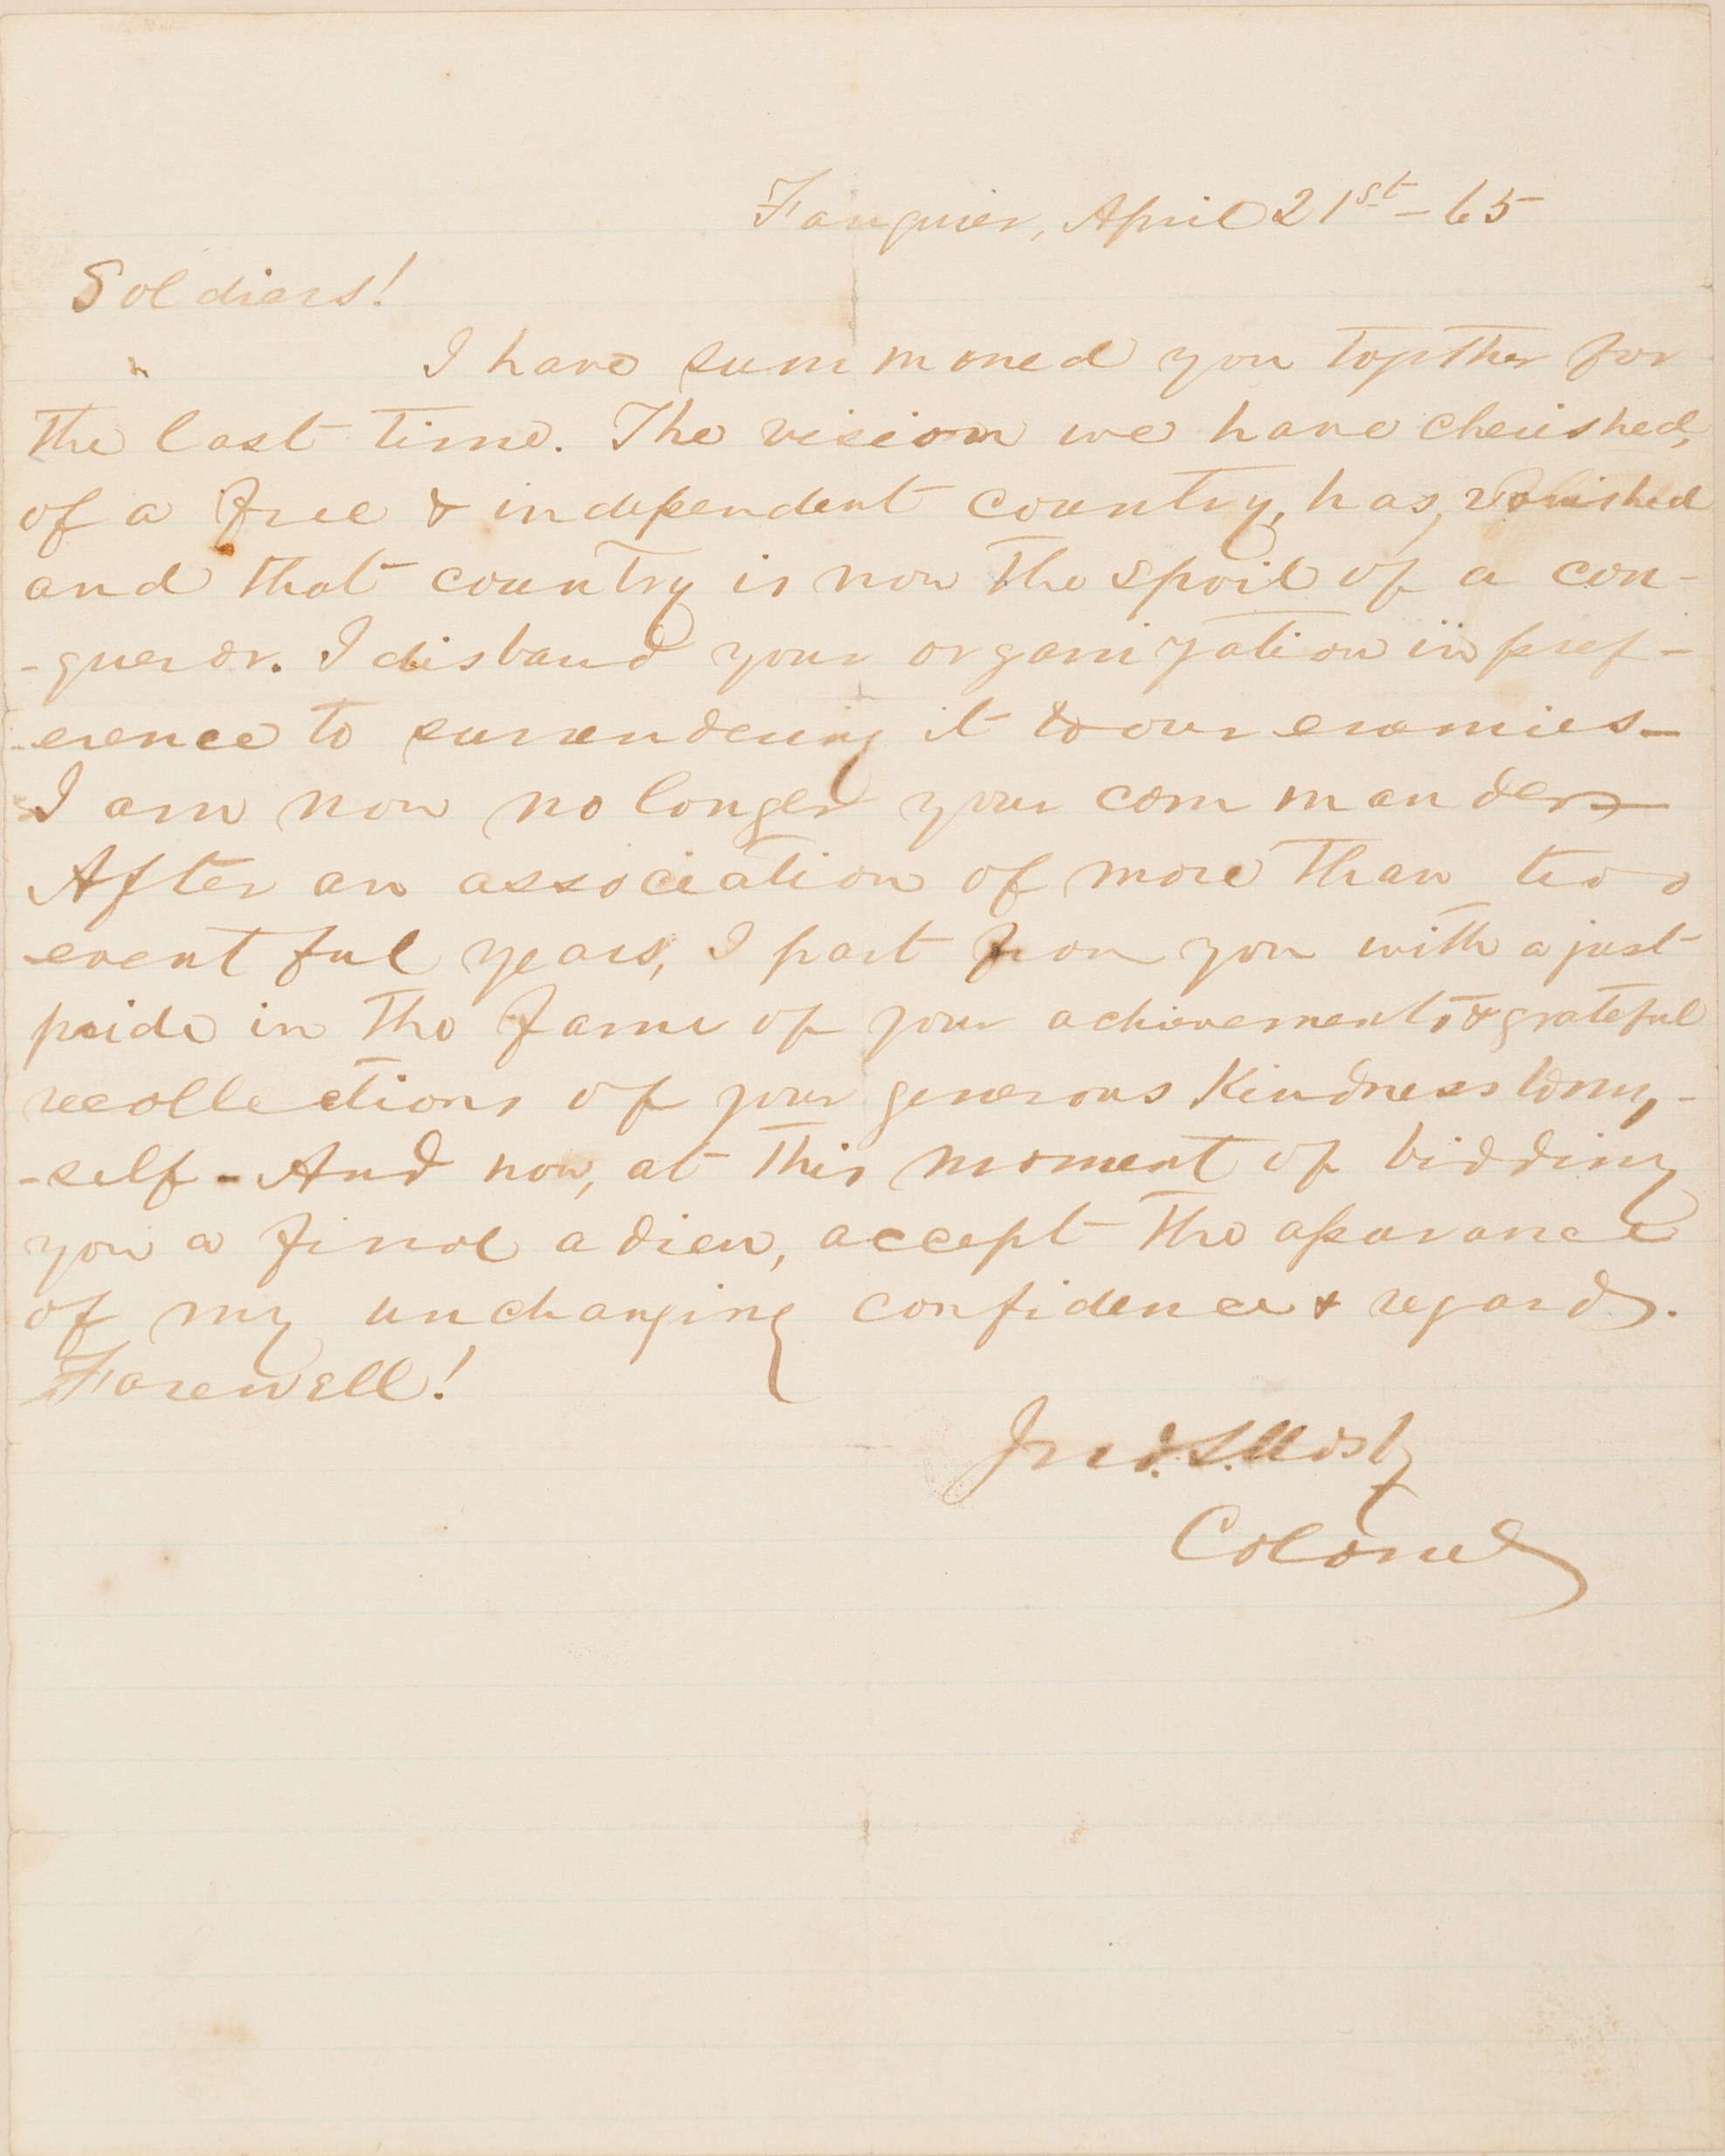 Fauquier, April 21st - 65
Soldiers!
I have summoned you together for
the last time. The vision we have cherished,
of a free & independent country, has, vanished
and that country is now the spoil of a con-
-queror. I disband your organization in pref-
-erence to surrendering it to our enemies -
I am now no longer your commander -
After an association of more than two
eventful years, I part from you with a just
pride in the fame of your achievements & grateful
recollections of your generous kindness to my-
-self - And now, at this moment of bidding
you a final adieu, accept the assurance
of my unchanging confidence & regard.
Farewell!
Jno. S. Mosby
Colonel